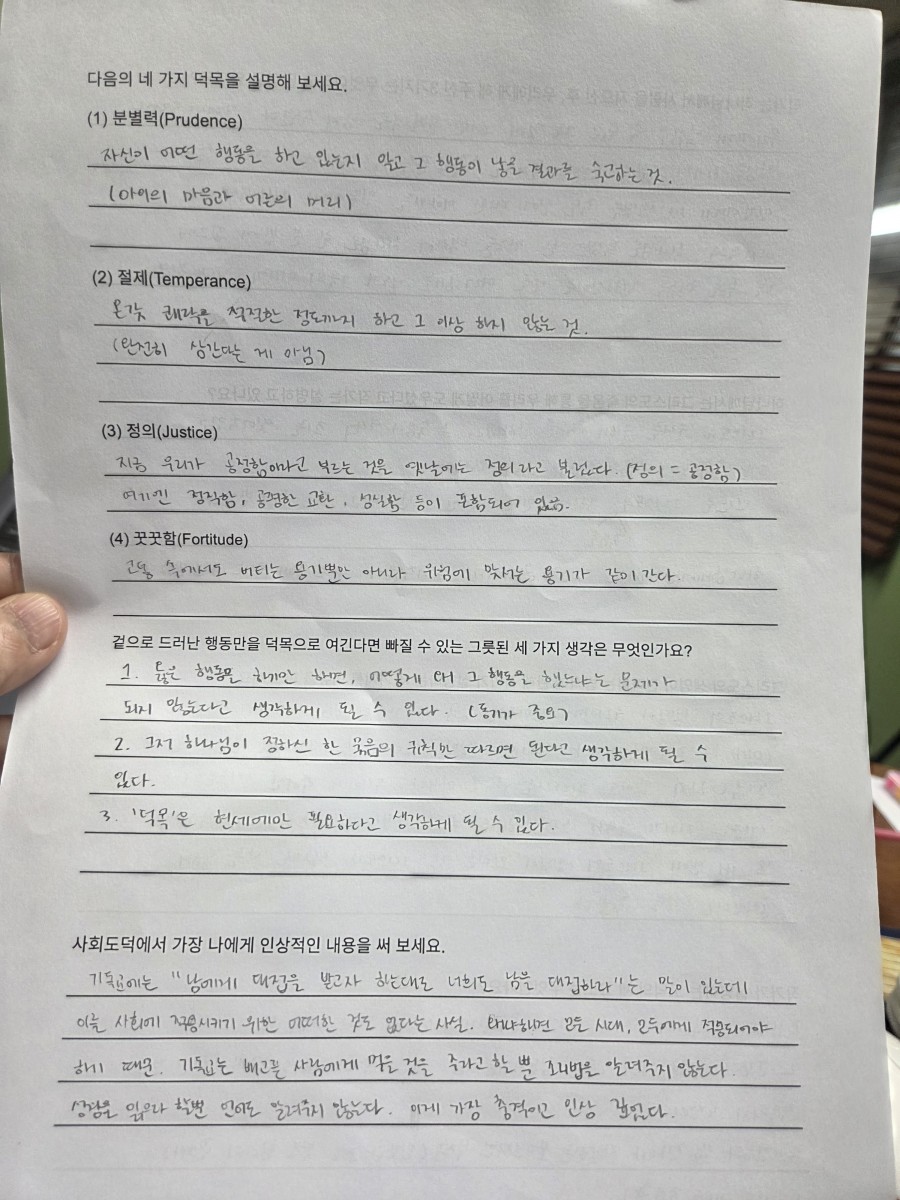 다음의 네 가지 덕목을 설명해 보세요.
(1) 분별력(Prudence)
자신이 어떤 행동을 하고 있는지 알고 그 행동이 낳을 결과를 숙고하는 것.
(아이의 마음과 어른의 머리)
(2) 절제(Temperance)
온갖 쾌락을 적절한 정도까지 하고 그 이상 하지 않는 것.
(완전히 삼간다는 게 아님)
(3) 정의(Justice)
지금 우리가 공정함이라고 부르는 것을 옛날에는 정의라고 불렀다. (정의 = 공정함)
여기엔 정직함, 공평한 교환, 성실함 등이 포함되어 있음.
(4) 꿋꿋함(Fortitude)
고통 속에서도 버티는 용기뿐만 아니라 위험에 맞서는 용기가 같이 간다.
겉으로 드러난 행동만을 덕목으로 여긴다면 빠질 수 있는 그릇된 세 가지 생각은 무엇인가요?
1. 옳은 행동을 하기만 하면, 어떻게 왜 그 행동을 했느냐는 문제가
되지 않는다고 생각하게 될 수 있다. (동기가 중요)
2. 그저 하나님이 정하신 한 묶음의 규칙만 따르면 된다고 생각하게 될 수
있다.
3. '덕목'은 현세에만 필요하다고 생각하게 될 수 있다.
사회도덕에서 가장 나에게 인상적인 내용을 써 보세요.
기독교에는 "남에게 대접을 받고자 하는대로 너희도 남을 대접하라"는 말이 있는데
이를 사회에 적용시키기 위한 어떠한 것도 없다는 사실. 왜냐하면 모든 시대, 모두에게 적용되어야
하기 때문. 기독교는 배고픈 사람에게 먹을 것을 주라고 할 뿐 조리법을 알려주지 않는다.
성경을 읽으라 할뿐 언어도 알려주지 않는다. 이게 가장 충격이고 인상 깊었다.